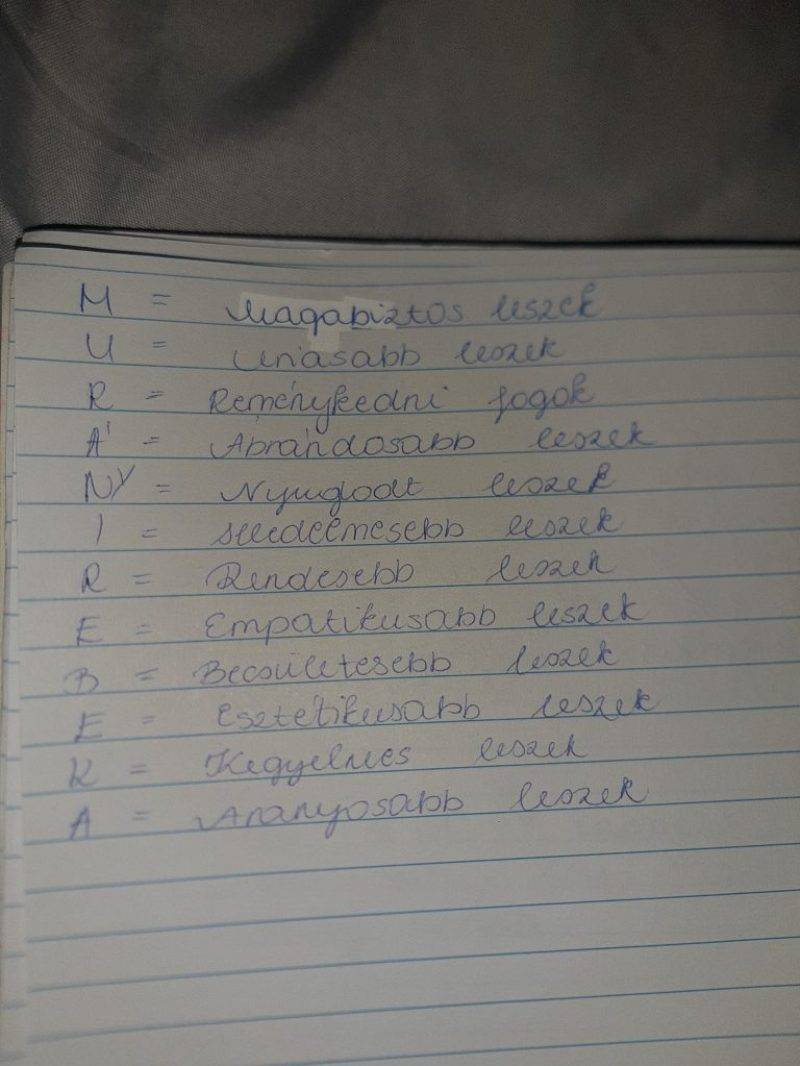 M = Magabiztos leszek
U = Uriasabb leszek
R = Reménykedni fogok
Á = Abrándosabb leszek
NY = Nyugodt leszek
I = leszek
R = Rendesebb leszek
E = Empatikusabb leszek
B = Becsületesebb leszek
E = Esztétikusabb leszek
K = Kegyelmes leszek
A = Aranyosabb leszek